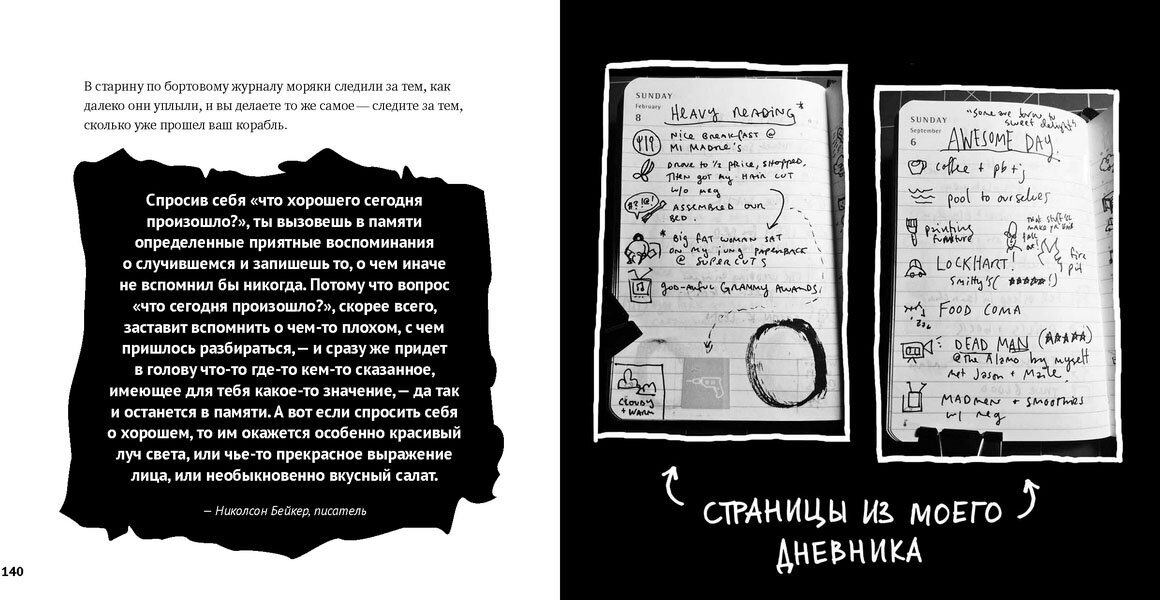 В старину по бортовому журналу моряки следили за тем, как
далеко они уплыли, и вы делаете то же самое — следите за тем,
сколько уже прошел ваш корабль.
Спросив себя «что хорошего сегодня
произошло?», ты вызовешь в памяти
определенные приятные воспоминания
о случившемся и запишешь то, о чем иначе
не вспомнил бы никогда. Потому что вопрос
«что сегодня произошло?», скорее всего,
заставит вспомнить о чем-то плохом, с чем
пришлось разбираться, — и сразу же придет
в голову что-то где-то кем-то сказанное,
имеющее для тебя какое-то значение, — да так
и останется в памяти. А вот если спросить себя
о хорошем, то им окажется особенно красивый
луч света, или чье-то прекрасное выражение
лица, или необыкновенно вкусный салат.
— Николсон Бейкер, писатель
140
SUNDAY
February
8
HEAVY READING*
NICE BREAKFAST @
MI MADRE'S
DROVE TO ½ PRICE, SHOPPED,
THEN GOT MY HAIR CUT
W/O MEG
#?!@!
ASSEMBLED OUR
BED.
* BIG FAT WOMAN SAT
ON MY JUNG PAPERBACK
@ SUPERCUTS
GOD-AWFUL GRAMMY AWARDS.
CLOUDY
+ WARM
SUNDAY
September
6
"some are born to
sweet delight"
AWESOME DAY.
coffee + pb+j
pool to ourselves
painting
furniture
that stuff'll
make ya
fall
fire
pit
LOCKHART!
Smitty's (★★★★★!)
FOOD COMA
DEAD MAN (★★★★★)
@ The Alamo by myself
met Jason + Marie.
MADMEN + SMOOTHIES
w/ meg
СТРАНИЦЫ ИЗ МОЕГО
ДНЕВНИКА